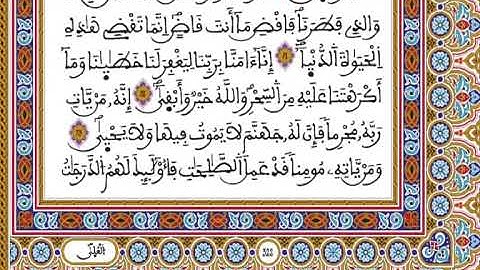 وَالذِے فَطَرَنَا فَاقْضِ مَا أَنتَ قَاضٍ اِنَّمَا تَقْضِے هَٰذِهِ
اِلْحَيَوٰةَ اَلدُّنْيَا إِنَّا ءَامَنَّا بِرَبِّنَا لِيَغْفِرَ لَنَا خَطَٰيَٰنَا وَمَا
أَكْرَهْتَنَا عَلَيْهِ مِنَ اَلسِّحْرِ وَاللَّهُ خَيْرٌ وَأَبْقَىٰ إِنَّهُۥ مَنْ يَّاتِ
رَبَّهُۥ مُجْرِماً فَإِنَّ لَهُۥ جَهَنَّمَ لَا يَمُوتُ فِيهَا وَلَا يَحْيَىٰ
وَمَنْ يَّاتِهِۦ مُومِناً قَدْ عَمِلَ اَلصَّٰلِحَٰتِ فَأُوْلَٰئِكَ لَهُمُ اُلدَّرَجَٰتُ
322